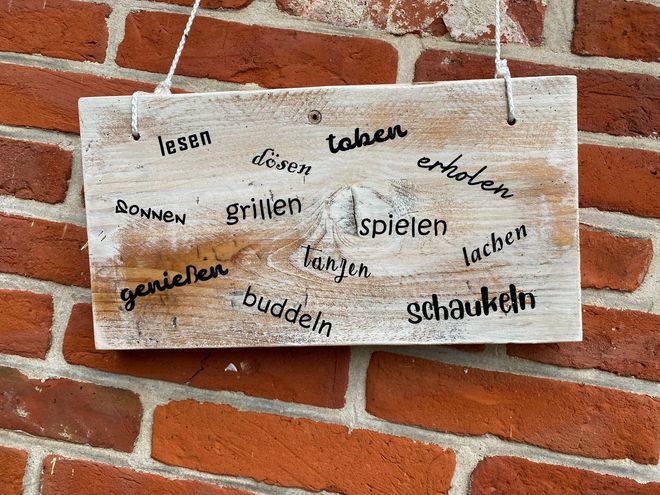 lesen
dösen
toben
erholen
sonnen
grillen
spielen
lachen
tanzen
genießen
buddeln
schaukeln